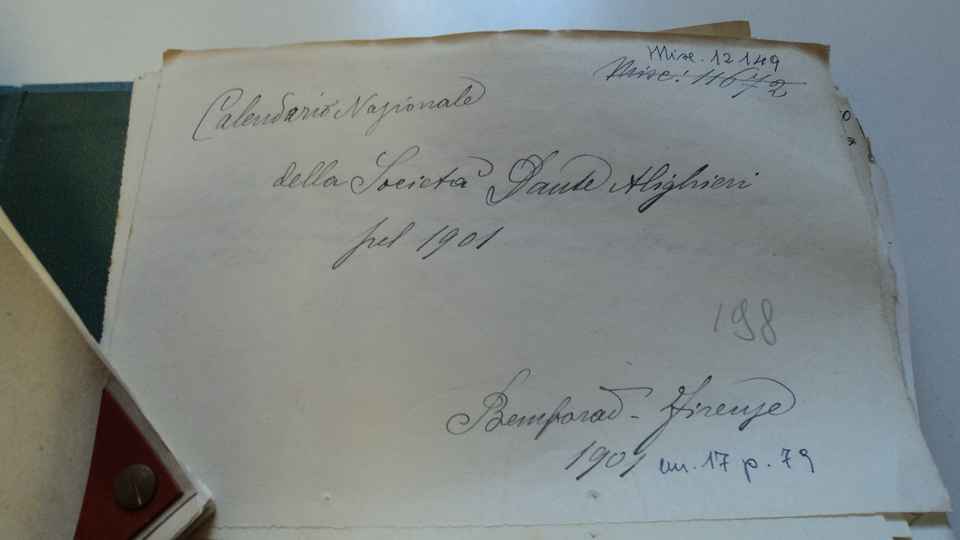 Misc. 12149
Misc. 11671/2
Calendario Nazionale
della Società Dante Alighieri
pel 1901
198
Bemporad - Firenze
1901 un. 17 p. 79